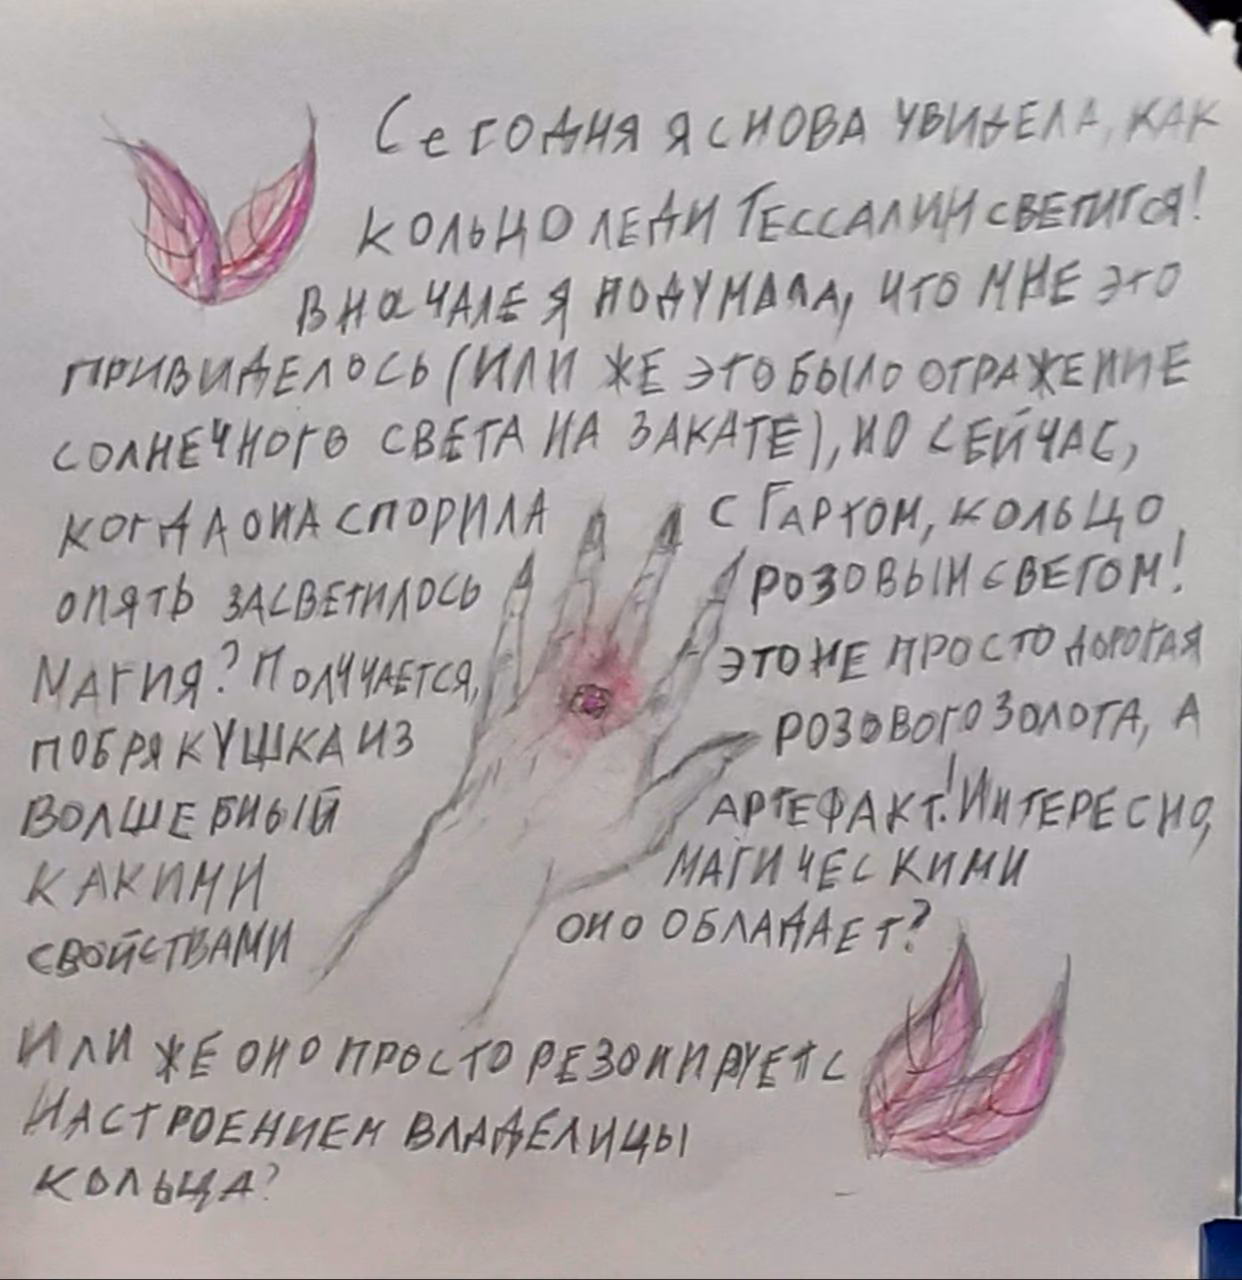 Сегодня я снова увидела, как
кольцо леди Тессалин светится!
Вначале я подумала, что мне это
привиделось (или же это было отражение
солнечного света на закате), но сейчас,
когда она спорила с Гартом, кольцо
опять засветилось розовым светом!
Магия? Получается, это не просто дорогая
побрякушка из розового золота, а
волшебный артефакт! Интересно,
какими магическими
свойствами оно обладает?
Или же оно просто резонирует с
настроением владелицы
кольца?